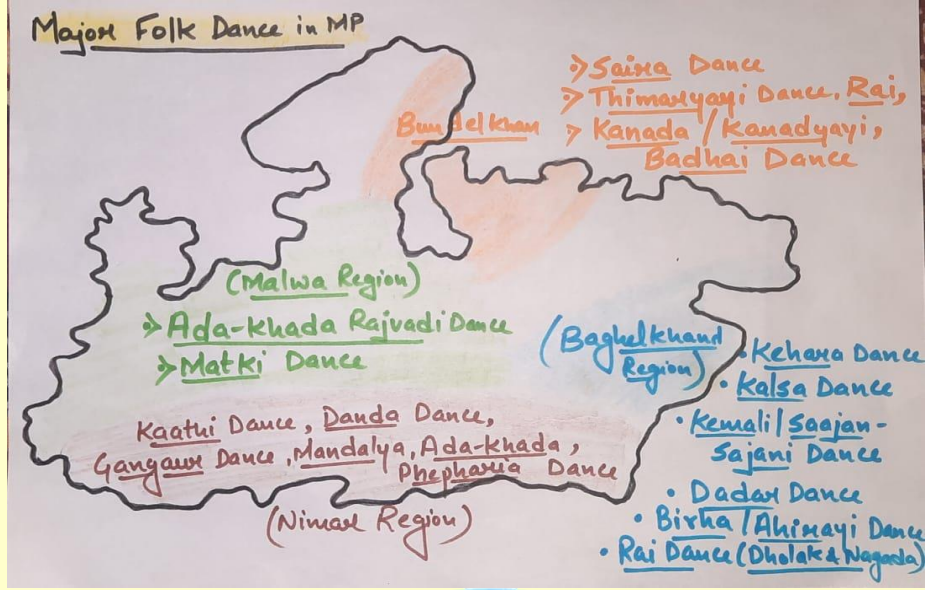 Major Folk Dance in MP
⪢ Saira Dance
⪢ Thimaryayi Dance, Rai,
⪢ Kanada / Kanadyayi,
Badhai Dance
Bundelkhan
(Malwa Region)
⪢ Ada-khada Rajvadi Dance
⪢ Matki Dance
(Baghelkhand
Region)
• Kehara Dance
• Kalsa Dance
• Kemali / Saajan-
Sajani Dance
• Dadar Dance
• Birha / Ahirayi Dance
• Rai Dance (Dholak & Nagada)
Kaathi Dance, Danda Dance,
Gangaur Dance, Mandalya, Ada-khada,
Phepharia Dance
(Nimar Region)